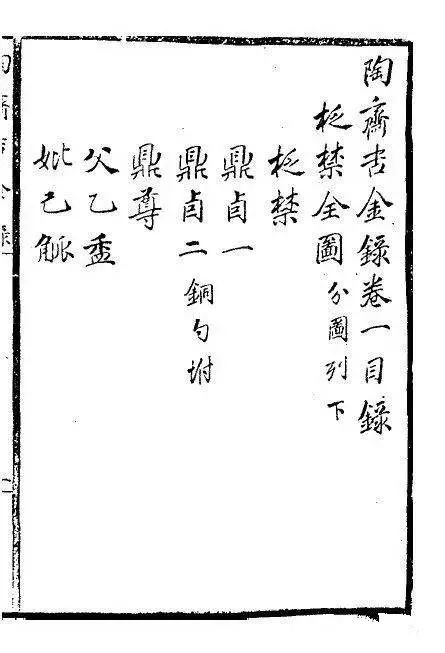 陶齋吉金錄卷一目錄
柉禁全圖 分圖列下
柉禁
鼎卣一
鼎卣二 銅勺坿
鼎尊
父乙盉
妣己觚
陶齋吉金錄